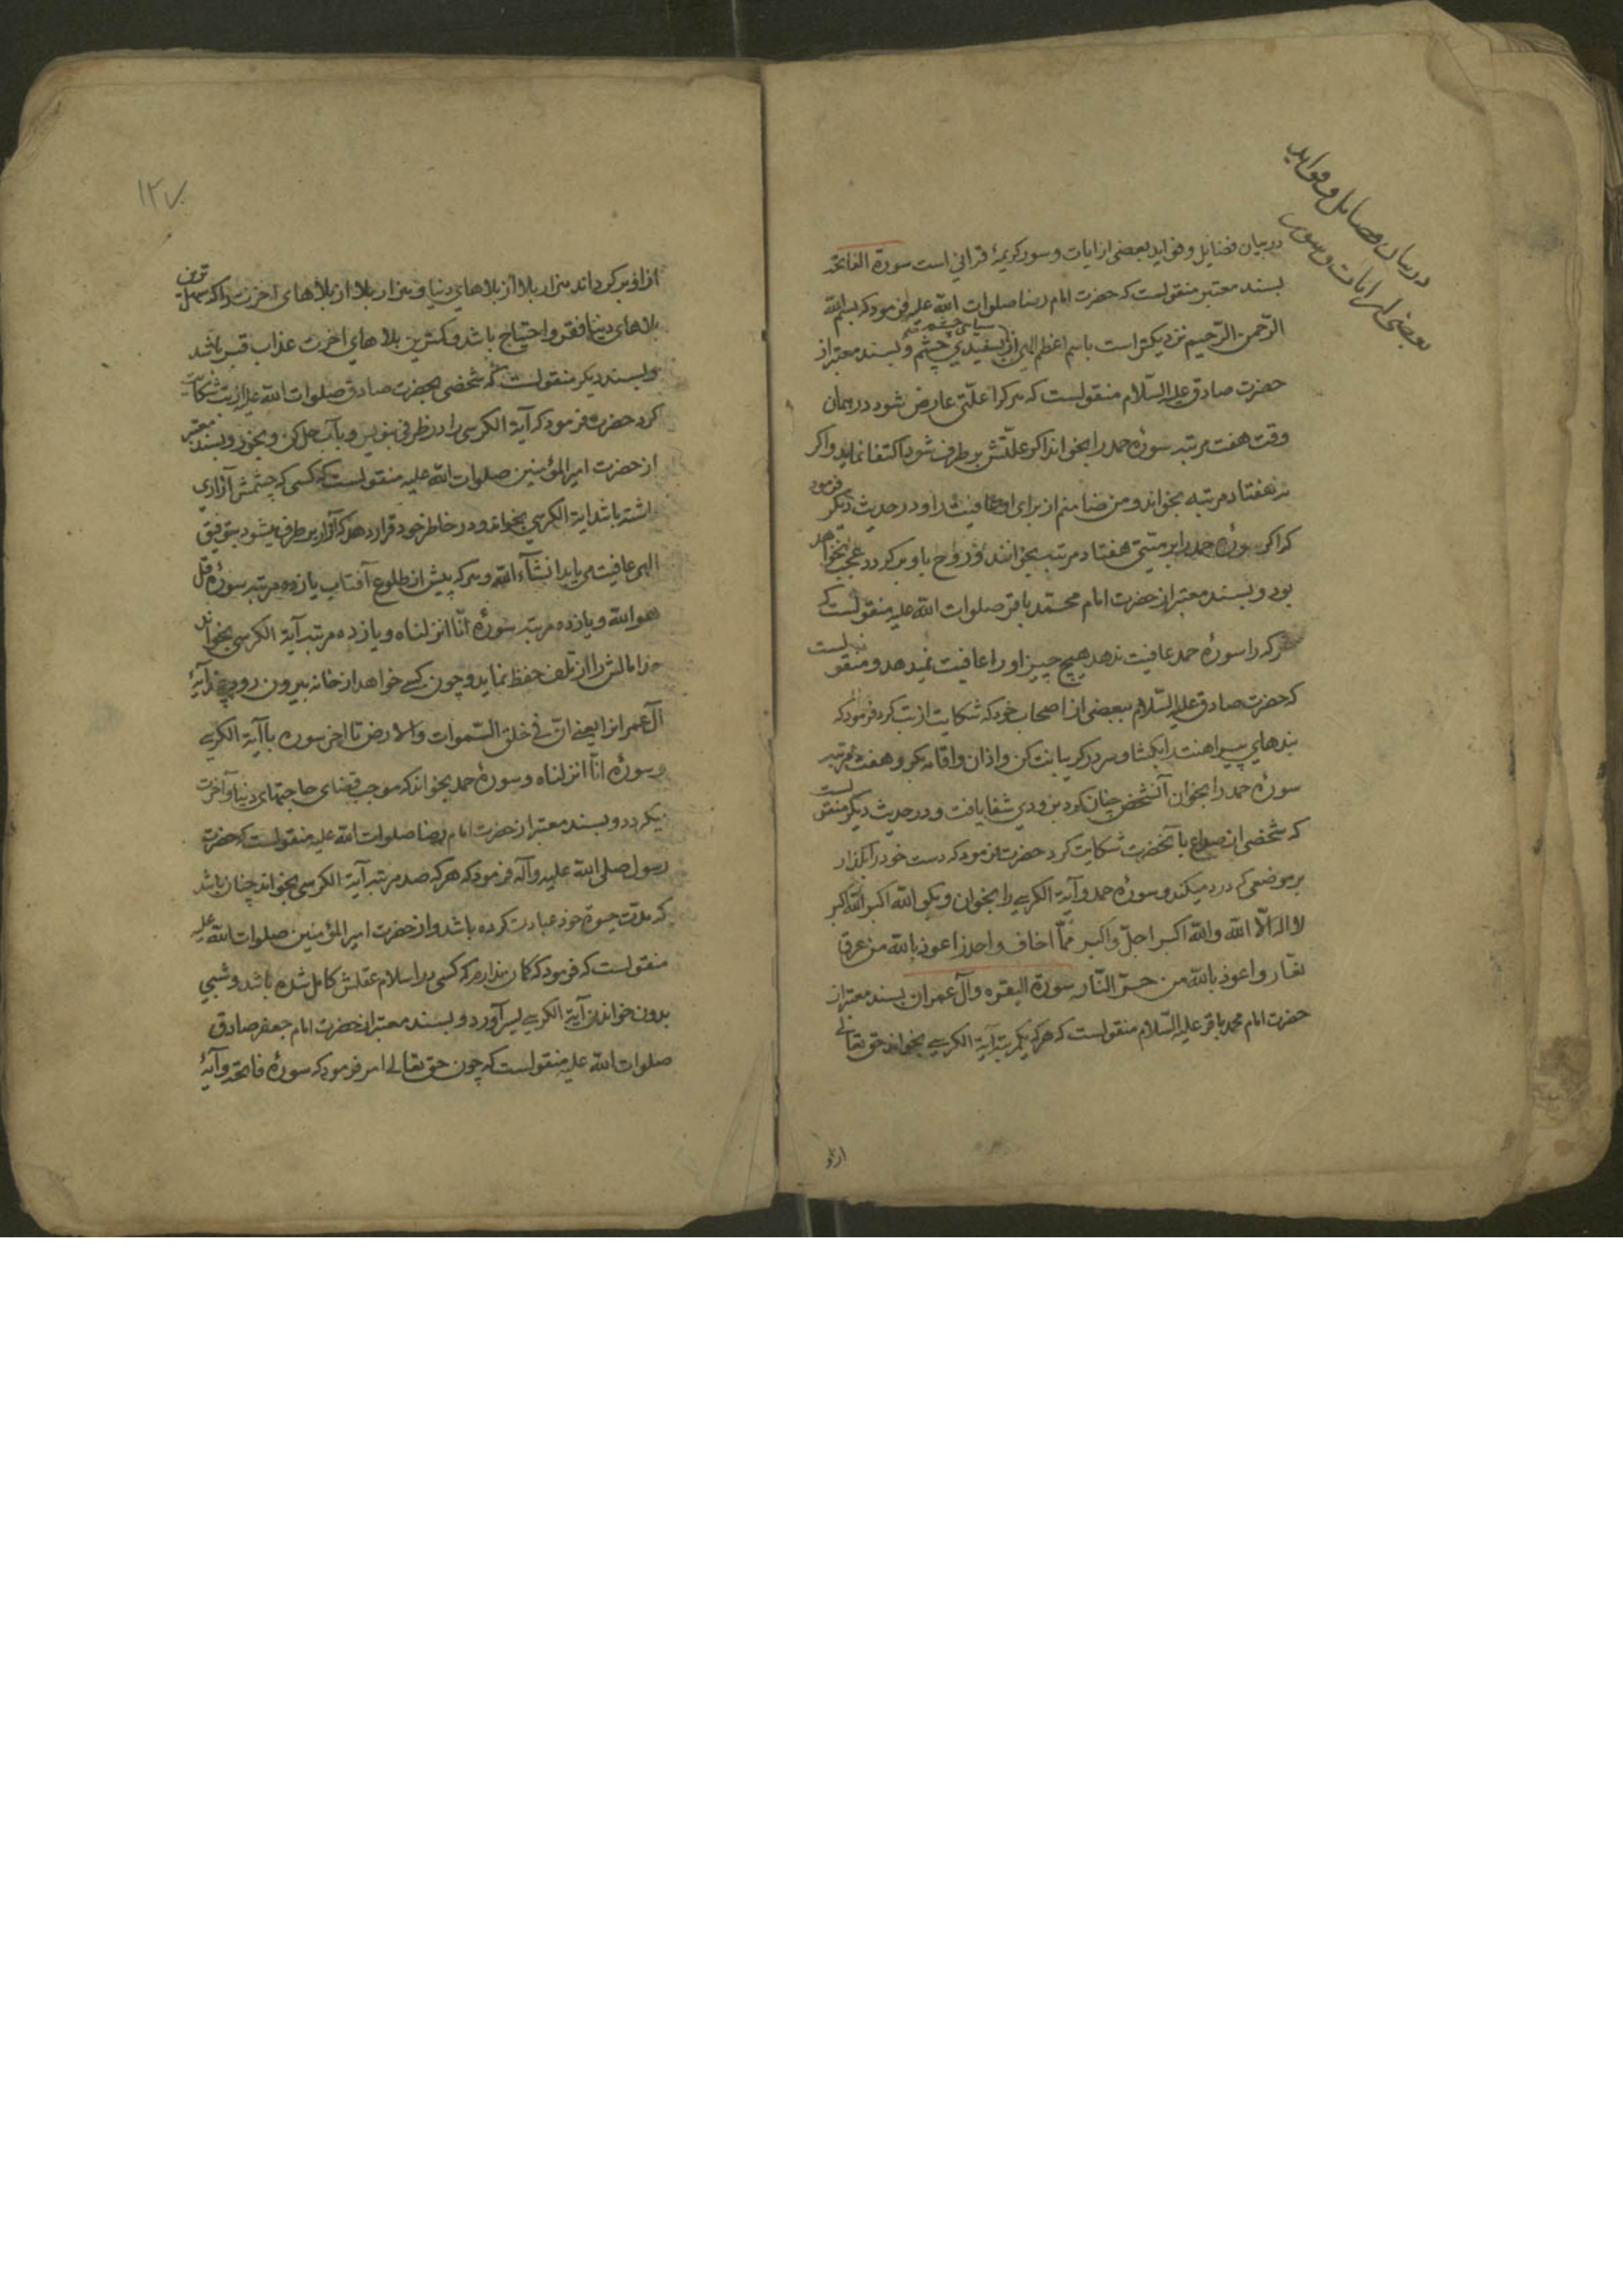 در بیان فضایل و فواید
بعضی از ایات و سور
در بیان فضایل و فواید بعضی از ایات و سور کریمهٔ قرانی است سورة الفاتحه
بسند معتبر منقولست که حضرت امام رضا صلوات الله علیه فرمود که بسم الله
الرّحمن الرّحیم نزدیکتر است باسم اعظم الهی از سیاهی چشم بسفیدی چشم و بسند معتبر از
حضرت صادق علیه السّلام منقولست که هر کرا علّتی عارض شود در همان
وقت هفت مرتبه سورهٔ حمد را بخواند اگر علّتش برطرف شود اکتفا نماید و اگر
نه هفتاد مرتبه بخواند و من ضامنم از برای او عافیت را و در حدیث دیگر فرمود
که اگر سورهٔ حمد را بر میّتی هفتاد مرتبه بخوانند و روح باو برگردد عجب نخواهد
بود و بسند معتبر از حضرت امام محمّد باقر صلوات الله علیه منقولست که
هر که را سورهٔ حمد عافیت ندهد هیچ چیز او را عافیت نمیدهد و منقولست
که حضرت صادق علیه السّلام ببعضی از اصحاب خود که شکایت از تب کرد فرمود که
بندهای پیراهنت را بکشا و سر در کریبانت کن و اذان و اقامه بکو و هفت مرتبه
سورهٔ حمد را بخوان آنشخص چنان کرد بزودی شفا یافت و در حدیث دیگر منقولست
که شخصی از صداع بآنحضرت شکایت کرد حضرت فرمود که دست خود را بکذار
بر موضعی که درد میکند و سورهٔ حمد و آیة الکرسی را بخوان و بکو الله اکبر الله اکبر
لا اله الّا الله والله اکبر اجلّ واکبر ممّا اخاف واحذر اعوذ بالله من عرق
نعّار واعوذ بالله من حرّ النّار سورة البقره و آل عمران بسند معتبر از
حضرت امام محمد باقر علیه السّلام منقولست که هر که یکمرتبه آیة الکرسی بخواند حق تعالی
از او
۱۲۷
از او برکرداند هزار بلا از بلاهای دنیا و هزار بلا از بلاهای اخرت را که سهل ترین
بلاهای دنیا فقر و احتیاج باشد و کمترین بلاهای اخرت عذاب قبر باشد
و بسند دیکر منقولست که شخصی بحضرت صادق صلوات الله علیه از تب شکایت
کرد حضرت فرمود که آیة الکرسی را در ظرفی بنویس و بآب حل کن و بخور و بسند معتبر
از حضرت امیر المؤمنین صلوات الله علیه منقولست که کسی که چشمش آزاری
داشته باشد آیة الکرسی بخواند و در خاطر خود قرار دهد که آزار برطرف میشود بتوفیق
الهی عافیت می یابد انشآء الله و هر که پیش از طلوع آفتاب یازده مرتبه سورهٔ قل
هو الله و یازده مرتبه سورهٔ انّا انزلناه و یازده مرتبه آیة الکرسی بخواند
خدا مالش را از تلف حفظ نماید و چون کسی خواهد از خانه بیرون رود آیهٔ
آل عمرانرا یعنی انّ فی خلق السّموات والارض تا اخر سوره با آیة الکرسی
و سورهٔ انّا انزلناه و سورهٔ حمد بخواند که موجب قضای حاجتهای دنیا و آخرت
میکردد و بسند معتبر از حضرت امام رضا صلوات الله علیه منقولست که حضرت
رسول صلی الله علیه وآله فرمود که هر که صد مرتبه آیة الکرسی بخواند چنان باشد
که مدّت حیوة خود عبادت کرده باشد و از حضرت امیر المؤمنین صلوات الله علیه
منقولست که فرمود که کمان ندارم که کسی در اسلام عقلش کامل شده باشد و شبی
بدون خواندن آیة الکرسی بسر آورد و بسند معتبر از حضرت امام جعفر صادق
صلوات الله علیه منقولست که چون حق تعالی امر فرمود که سورهٔ فاتحه و آیهٔ